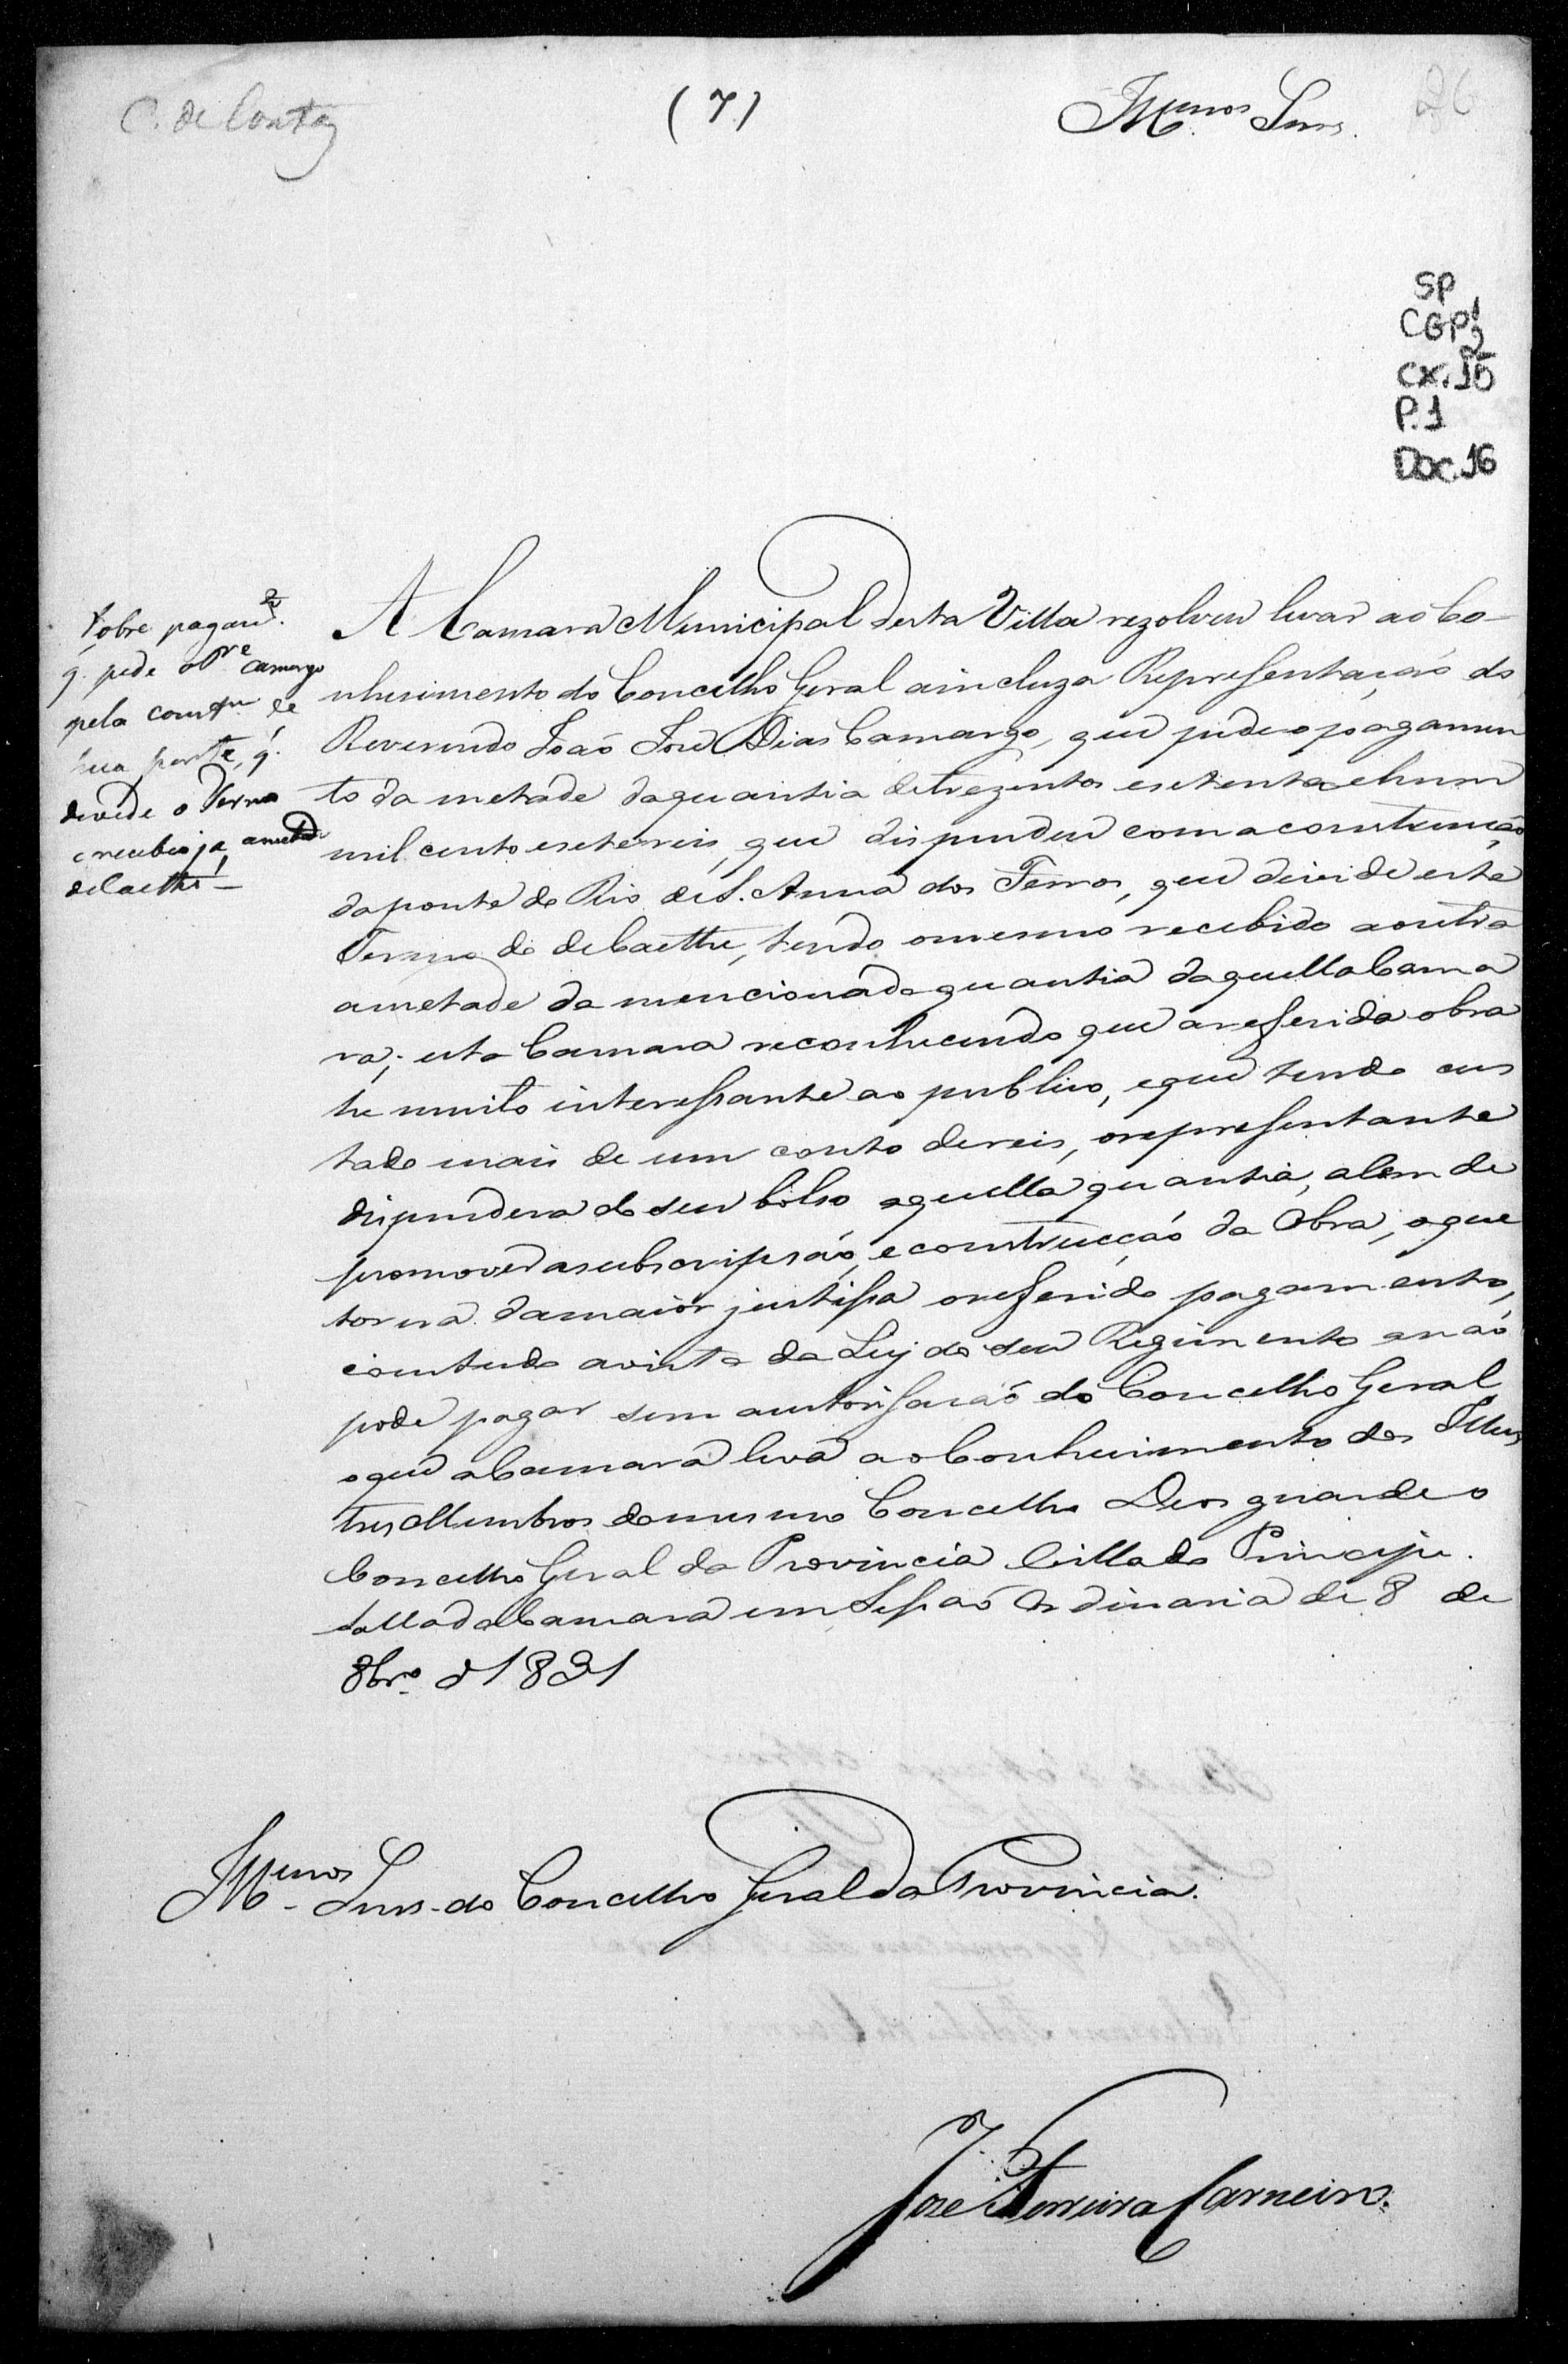 C. de Contas
(7)
Illmos Snrs.
26
SP
CGP 1/2
CX. 15
P. 1
Doc. 16
Sobre pagam.to
q. pede o P.e Camargo
pela constr.m de
hua ponte, q.
devide o Termo
e recebeo já ametade
de Caethé
A Camara Municipal desta Villa rezolveu levar ao Co-
nhesimento do Concelho Geral aincluza Reprezentaçaó do
Reverendo Joaó Joze Dias Camargo, que pede o pagamen
to da metade daquantia detrezentos esetenta ehum
mil cento esete reis, que dispendeu com aconstrucçaõ
daponte do Rio de S. Anna dos Ferros, que devide este
Termo do de Caethe, tendo omesmo recebido aoutra
ametade da mencionada quantia daquella Cama
ra; esta Camara reconhecendo que areferida obra
he muito interessante ao publico, eque tendo cus
tado mais de um conto dereis, orepresentante
dispendera do seu bolso aquella quantia, alem de
promover asubscripsaó, e construcçaó da Obra, oque
torna damaior justissa oreferido pagamento,
comtudo avista da Ley do seu Regimento onaó
pode pagar sem autorisacaó do Concelho Geral
oque aCamara leva aoConhecimento dos Illus
tres Membros domesmo Concelho Deos guarde o
Concelho Geral da Provincia Villa do Principe.
Salla da Camara em Sessaó Ordinaria de 8 de
8br.o d 1831
Illmos Snrs. do Concelho Geral da Provincia.
Joze Ferreira Carneiro.